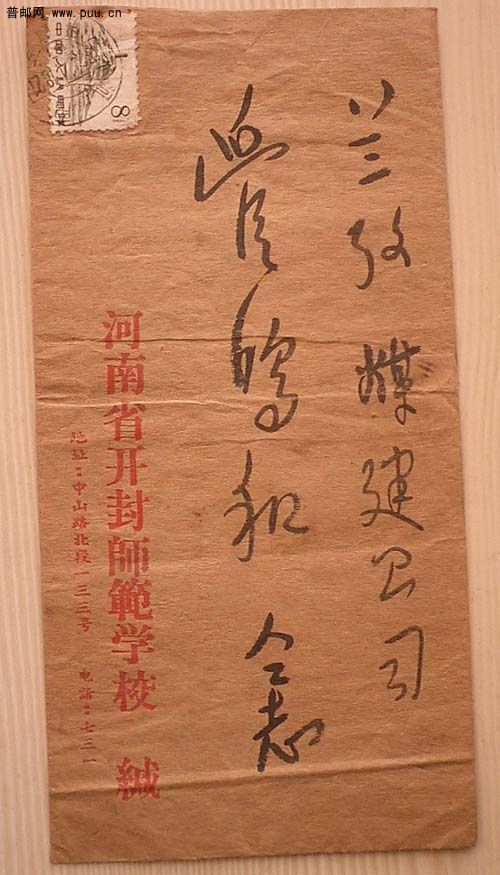 普邮网 www.puu.cn
8
兰考 煤建公司
鹤和 仝志
河南省开封師範学校 緘
地址：中山路北段一三三号 电话：七三一